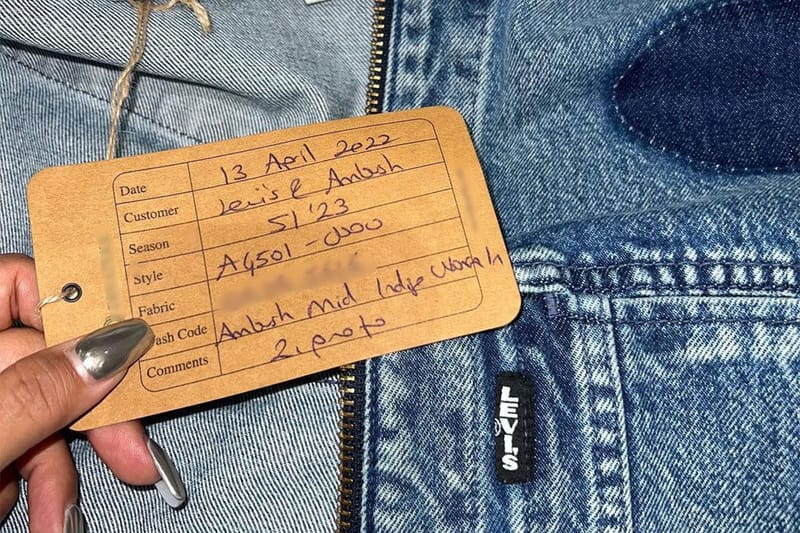 Date 13 April 2022
Customer Levi's & Ambush
Season S1 '23
Style A4501 - 0000
Fabric
ash Code Ambush Mid Indigo Worn In
Comments 2. proto
LEVI'S